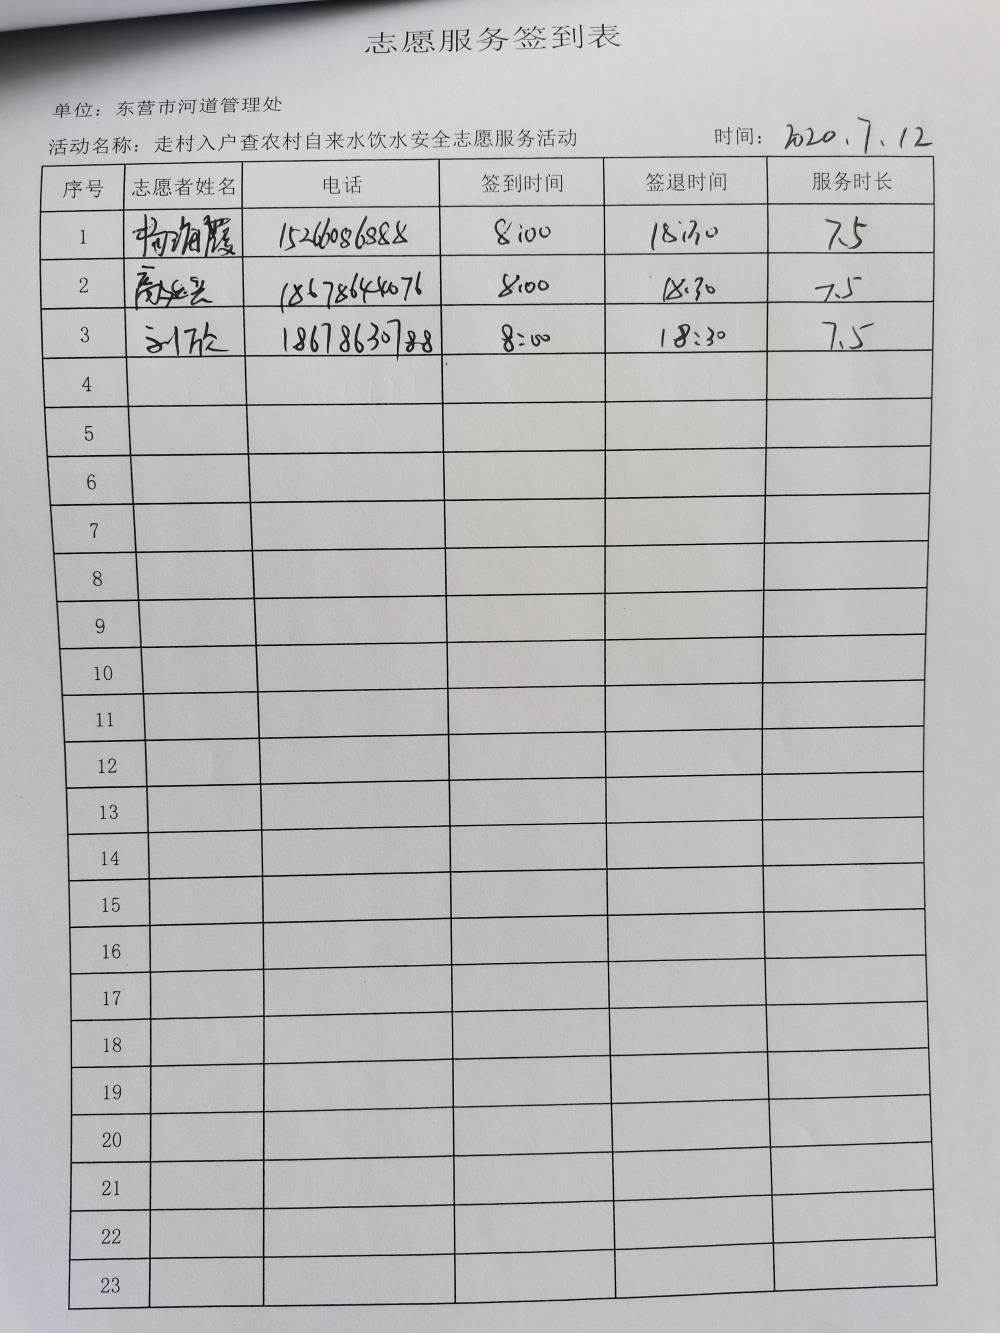 志愿服务签到表
单位：东营市河道管理处
活动名称：走村入户查农村自来水饮水安全志愿服务活动 时间：2020.7.12
序号 志愿者姓名 电话 签到时间 签退时间 服务时长
1 杨海霞 15266086888 8:00 18:30 7.5
2 18678644076 8:00 18:30 7.5
3 刘欣 18678630788 8:00 18:30 7.5
4
5
6
7
8
9
10
11
12
13
14
15
16
17
18
19
20
21
22
23